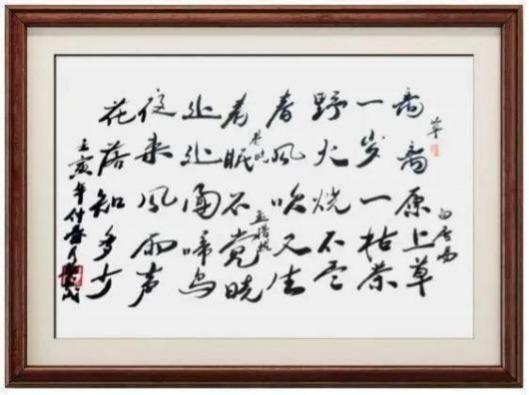 草 白居易
离离原上草
一岁一枯荣
野火烧不尽
春风吹又生
春晓 孟浩然
春眠不觉晓
处处闻啼鸟
夜来风雨声
花落知多少
壬寅年